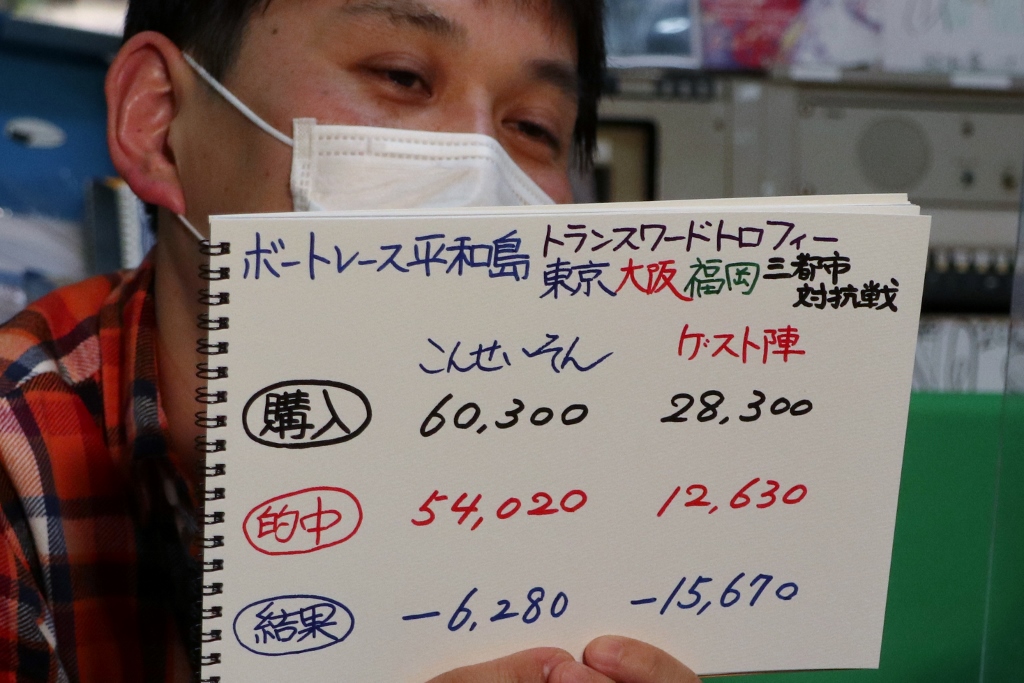 ボートレース平和島 トランスワードトロフィー
東京大阪福岡三都市
対抗戦
こんせいそん ゲスト陣
購入 60,300 28,300
的中 54,020 12,630
結果 -6,280 -15,670